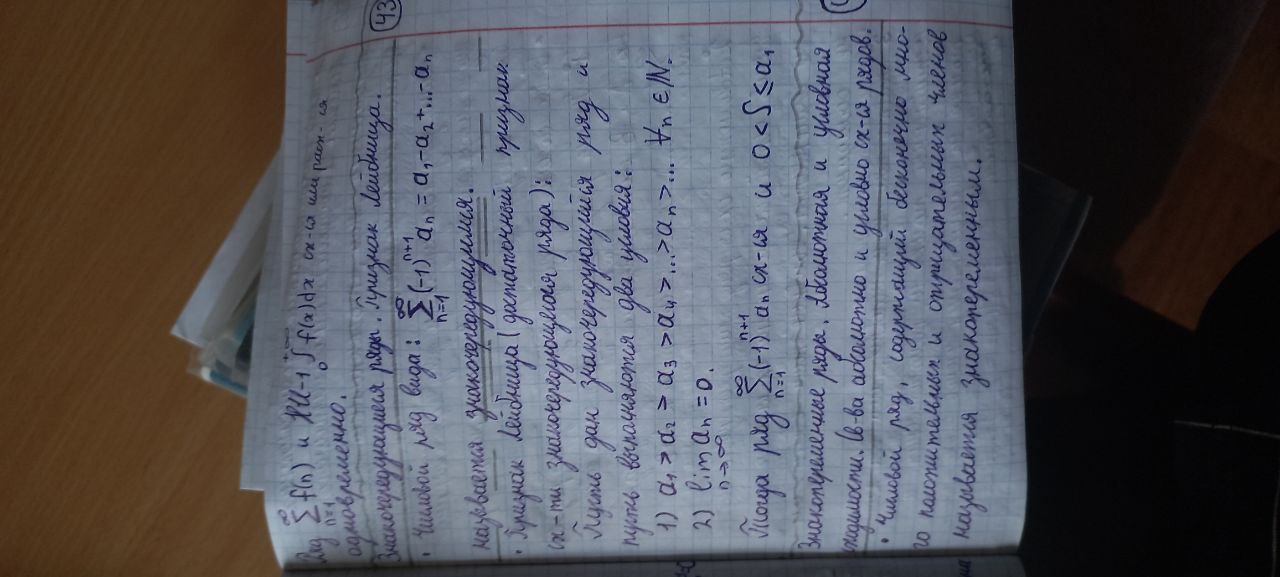 Ряд ∑_{n=1}^{∞} f(n) и НИ-1 ∫_0^{+∞} f(x)dx сх-ся или расх-ся
одновременно.
Знакочередующиеся ряды. Признак Лейбница. 43
• Числовой ряд вида: ∑_{n=1}^{∞} (-1)^{n+1} a_n = a_1 - a_2 + ... - a_n
называется знакочередующимся.
• Признак Лейбница (достаточный признак
сх-ти знакочередующегося ряда):
Пусть дан знакочередующийся ряд и
пусть выполняются два условия:
1) a_1 > a_2 > a_3 > a_4 > ... > a_n > ... ∀n ∈ N.
2) lim_{n→∞} a_n = 0.
Тогда ряд ∑_{n=1}^{∞} (-1)^{n+1} a_n сх-ся и 0 < S ≤ a_1
Знакопеременные ряды. Абсолютная и условная
сходимости. Св-ва абсолютно и условно сх-ся рядов.
• Числовой ряд, содержащий бесконечно мно-
го положительных и отрицательных членов
называется знакопеременным.